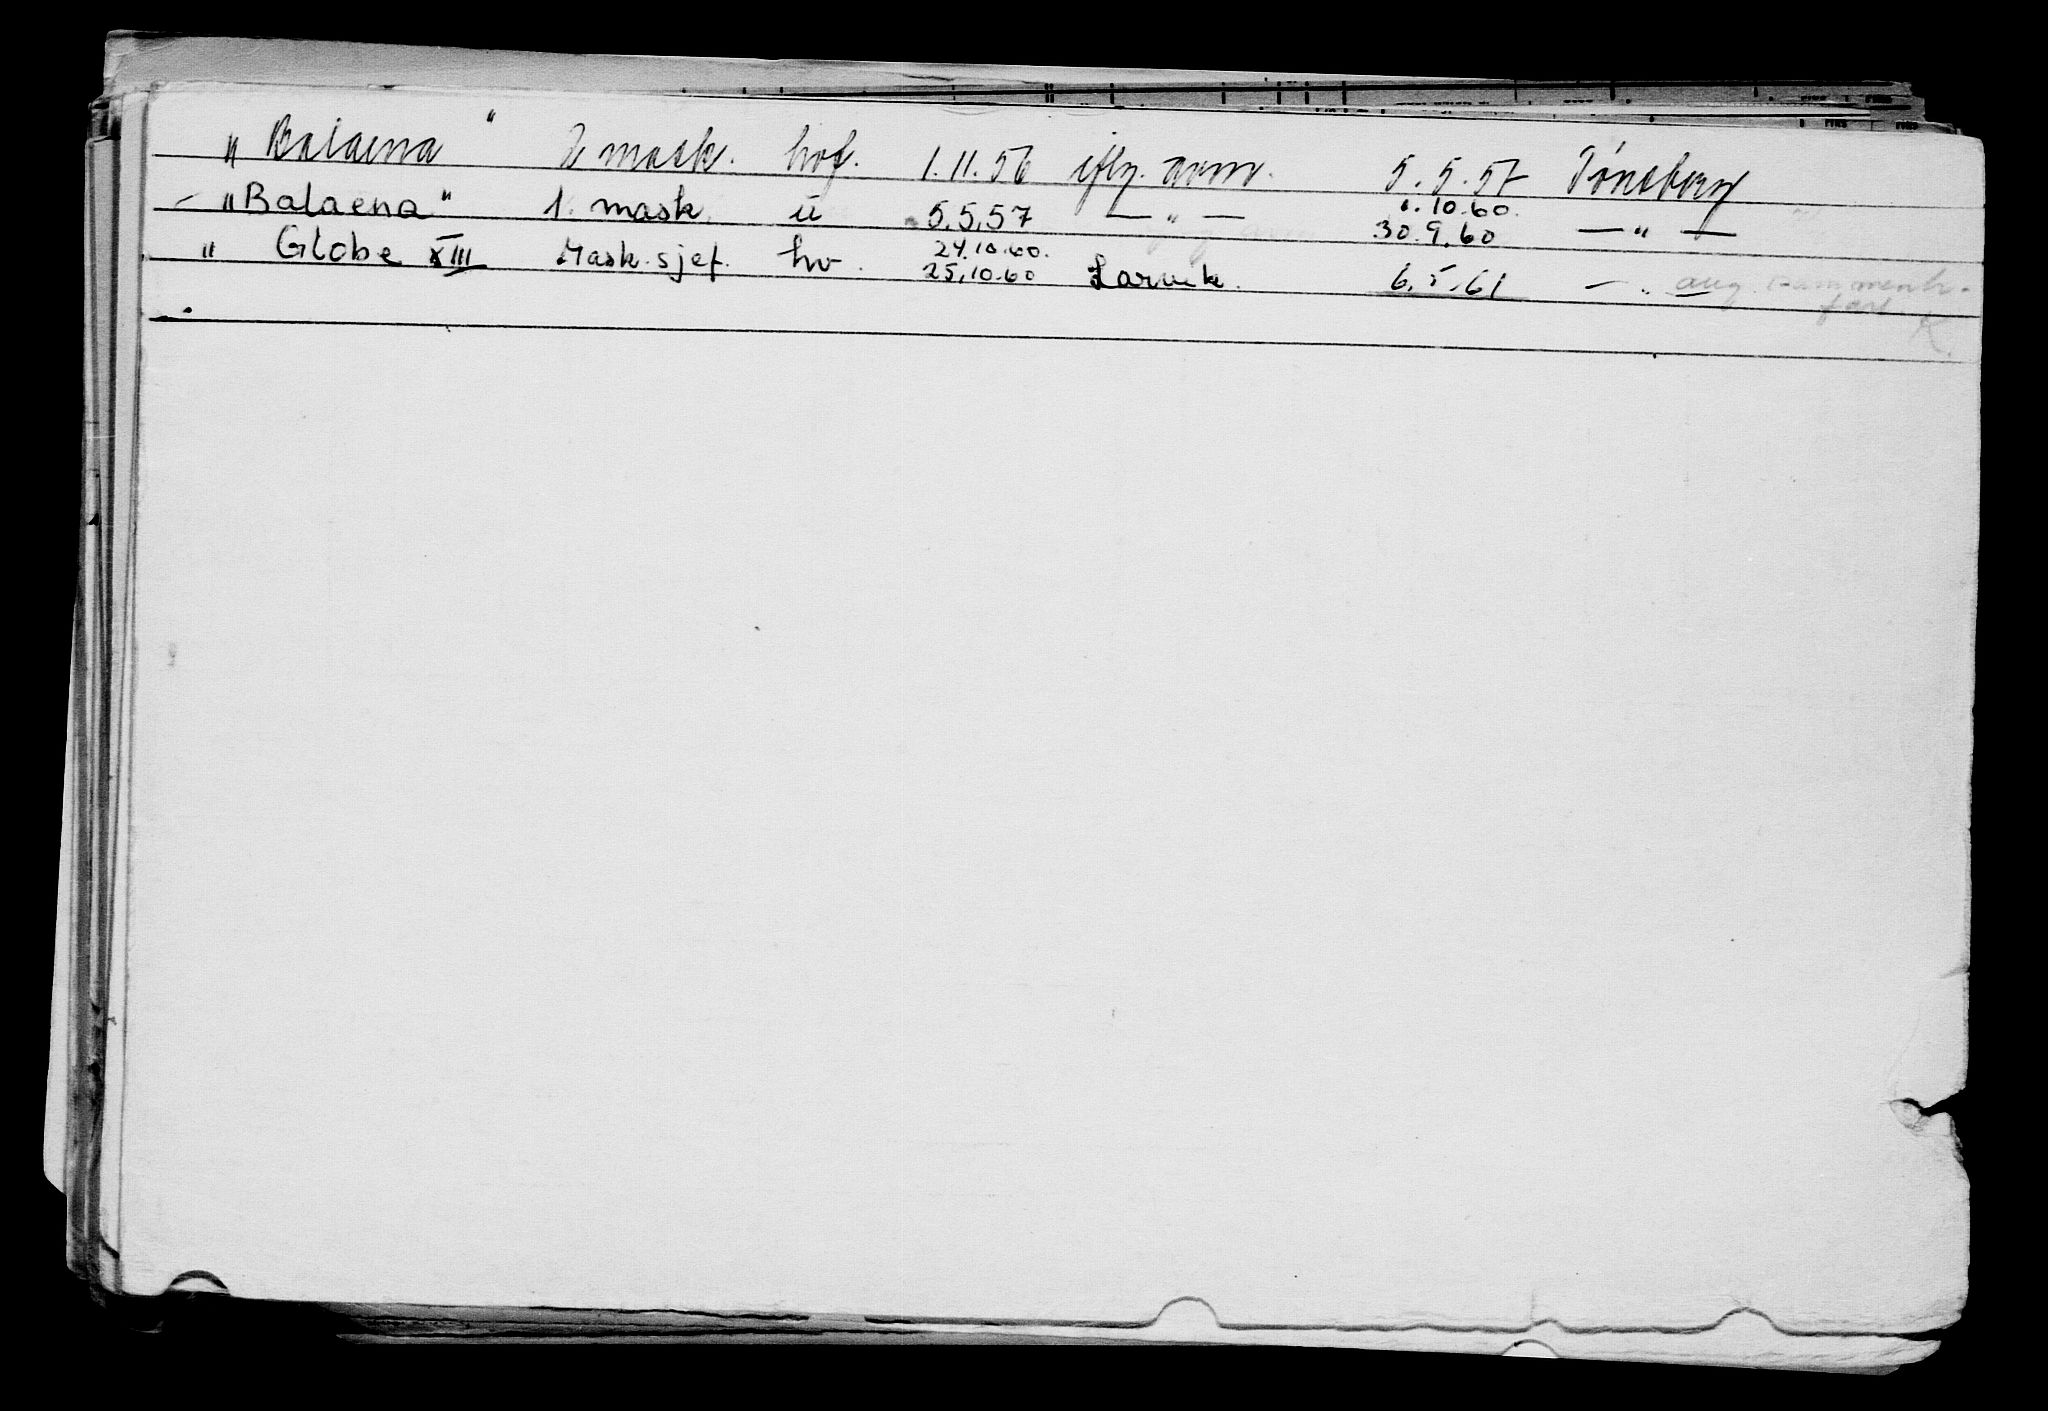 „ Balaena " 2 mask. hvf. 1.11.56 iflg. avm. 5.5.57 Tønsberg
- „Balaena" 1. mask. u 5.5.57 — " — 1.10.60. 30.9.60 — " —
" Globe XIII Mask.sjef. hv. 24.10.60. 25.10.60 Larvik. 6.5.61 — " —
fart
K.